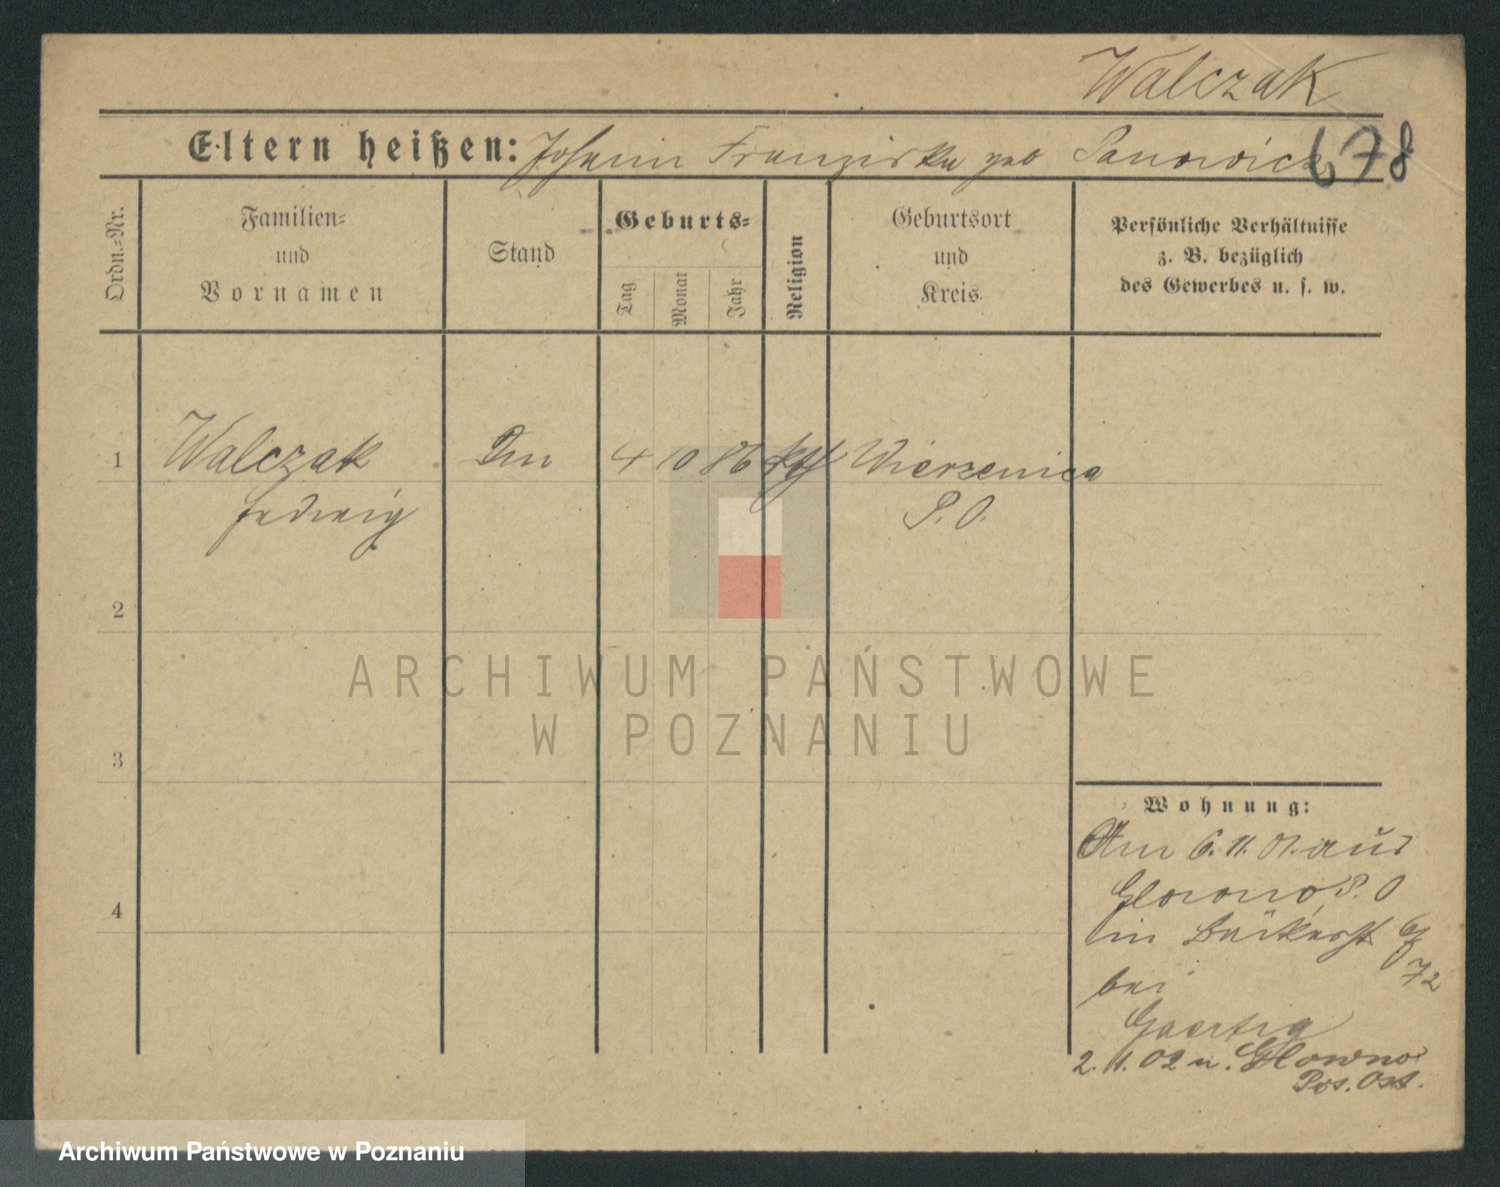 Walczak
Eltern heißen: Johann Franziska geb
678
Ordn.=Nr.
Familien=
und
Vornamen
Stand
Geburts=
Tag
Monat
Jahr
Religion
Geburtsort
und
Kreis
Persönliche Verhältnisse
z. B. bezüglich
des Gewerbes u. s. w.
1 Walczak 4 10 86 kth Wierzenica
Hedwig P. O.
2
3
4
ARCHIWUM PAŃSTWOWE
W POZNANIU
Wohnung:
Am 6. 11. 01. aus
Glowno P. O
in Bäckerst
bei
Gaertig
2. 11. 02 n. Glowno
Pos. Ost.
Archiwum Państwowe w Poznaniu